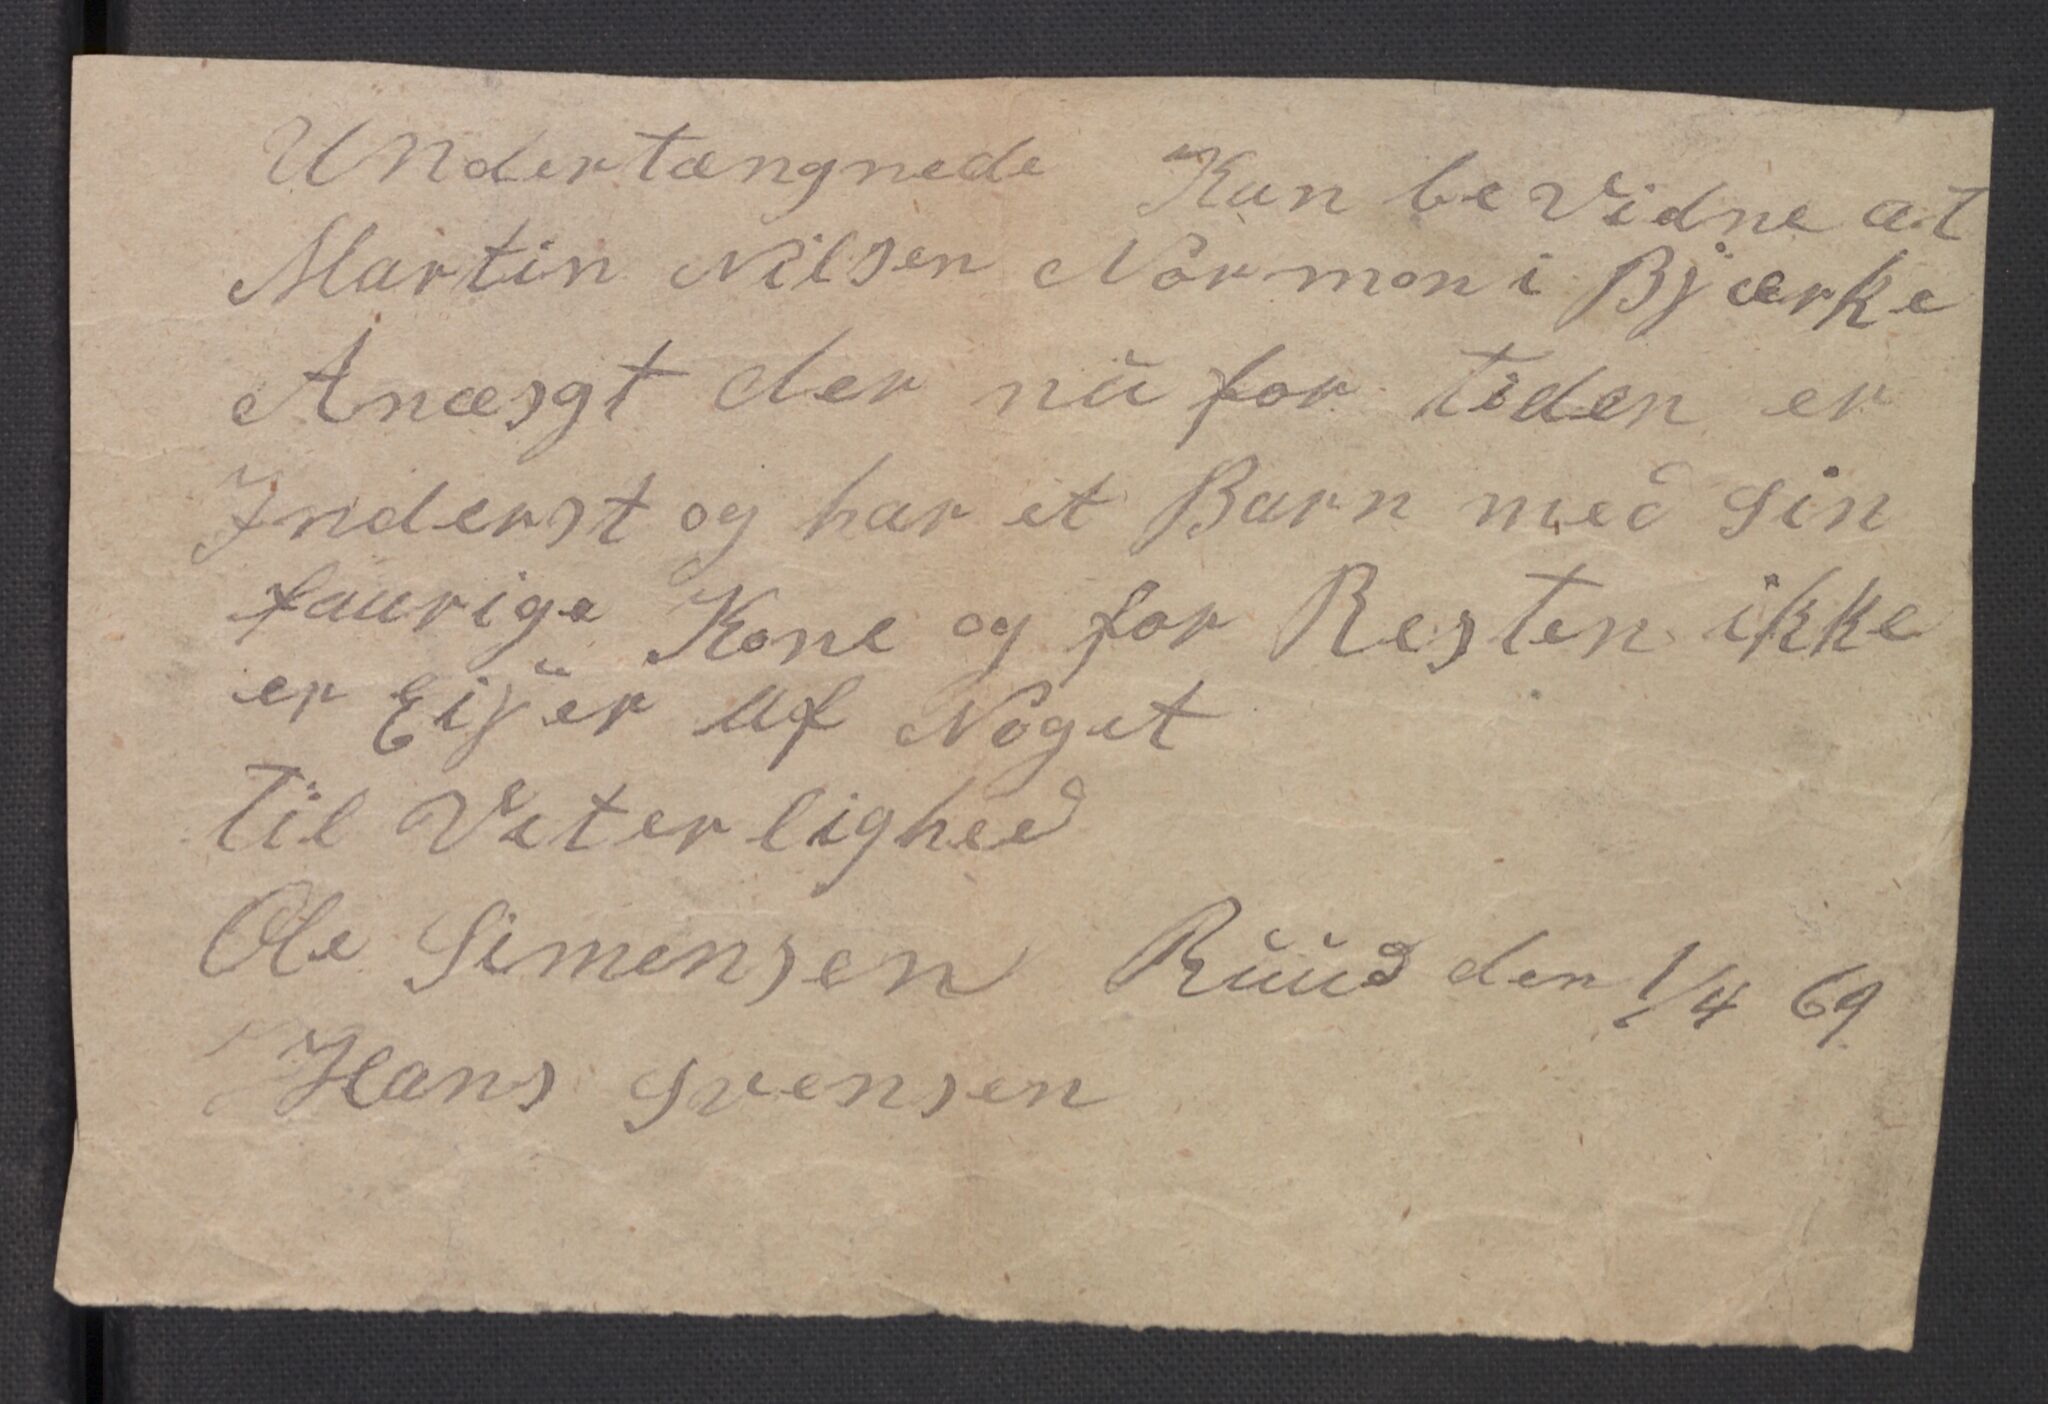 Undertængnede Kan be Vidne at
Martin Nilsen Normon i Bjærke
Anæsgt der nu for tiden er
Inderst og har et Barn med Sin
faurige Kone og for Resten ikke
er Eijer af Noget
til Veterlighed
Ole Simensen Ruud den 1/4 69
Hans Svensen